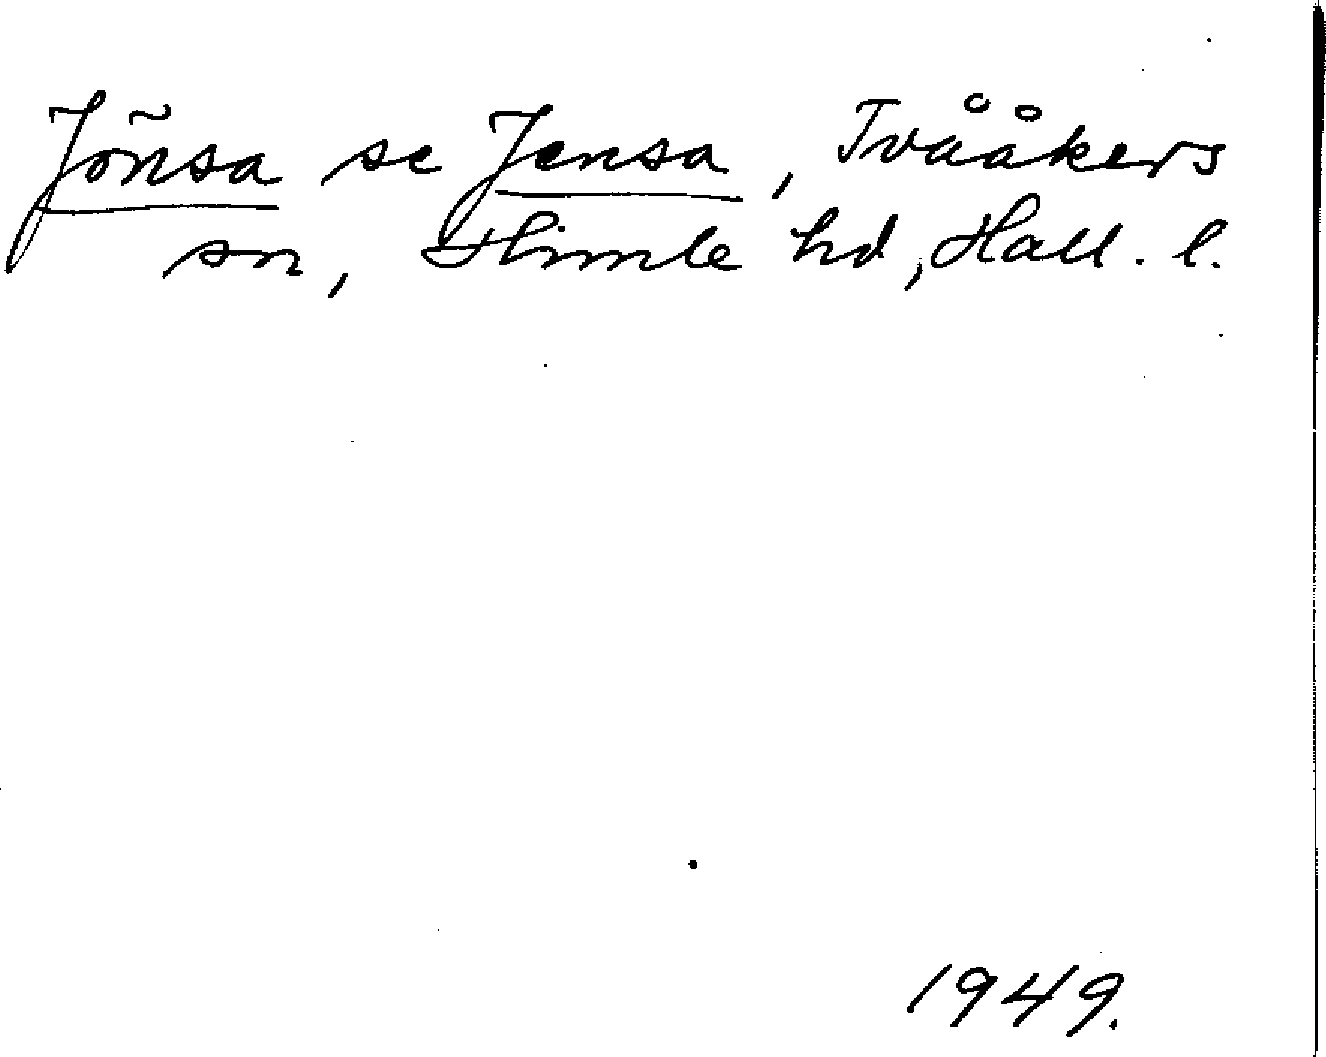 Jönsa se Jensa, Tvååkers
sn, Himle hd, Hall. l.
1949.